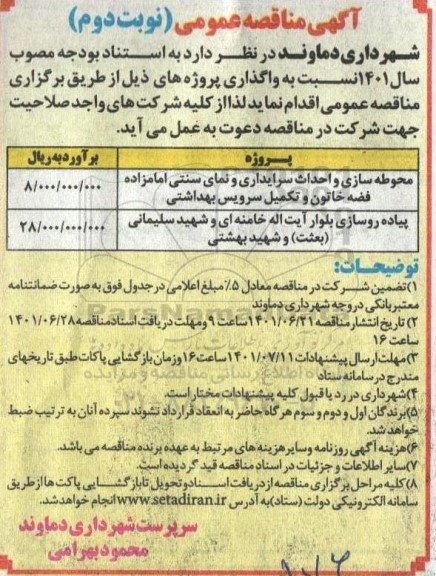 آگهی مناقصه عمومی (نوبت دوم)
شهرداری دماوند در نظر دارد به استناد بودجه مصوب
سال ۱۴۰۱ نسبت به واگذاری پروژه های ذیل از طریق برگزاری
مناقصه عمومی اقدام نماید لذا از کلیه شرکت های واجد صلاحیت
جهت شرکت در مناقصه دعوت به عمل می آید.
پــروژه برآورد به ریال
محوطه سازی و احداث سرایداری و نمای سنتی امامزاده
فضه خاتون و تکمیل سرویس بهداشتی ۸/۰۰۰/۰۰۰/۰۰۰
پیاده روسازی بلوار آیت اله خامنه ای و شهید سلیمانی
(بعثت) و شهید بهشتی ۲۸/۰۰۰/۰۰۰/۰۰۰
توضیحات:
۱) تضمین شرکت در مناقصه معادل ۵٪ مبلغ اعلامی در جدول فوق به صورت ضمانتنامه
معتبر بانکی در وجه شهرداری دماوند
۲) تاریخ انتشار مناقصه ۱۴۰۱/۰۶/۲۱ ساعت ۹ و مهلت دریافت اسناد مناقصه ۱۴۰۱/۰۶/۲۸
ساعت ۱۶
۳) مهلت ارسال پیشنهادات ۱۴۰۱/۰۷/۱۱ ساعت ۱۶ و زمان بازگشایی پاکات طبق تاریخهای
مندرج در سامانه ستاد
۴) شهرداری در رد یا قبول کلیه پیشنهادات مختار است.
۵) برندگان اول و دوم و سوم هرگاه حاضر به انعقاد قرارداد نشوند سپرده آنان به ترتیب ضبط
خواهد شد.
۶) هزینه آگهی روزنامه و سایر هزینه های مرتبط به عهده برنده مناقصه می باشد.
۷) سایر اطلاعات و جزئیات در اسناد مناقصه قید گردیده است.
۸) کلیه مراحل برگزاری مناقصه از دریافت اسناد و تحویل تا بازگشایی پاکت ها از طریق
سامانه الکترونیکی دولت (ستاد) به آدرس www.setadiran.ir انجام خواهد شد.
سرپرست شهرداری دماوند
محمود بهرامی